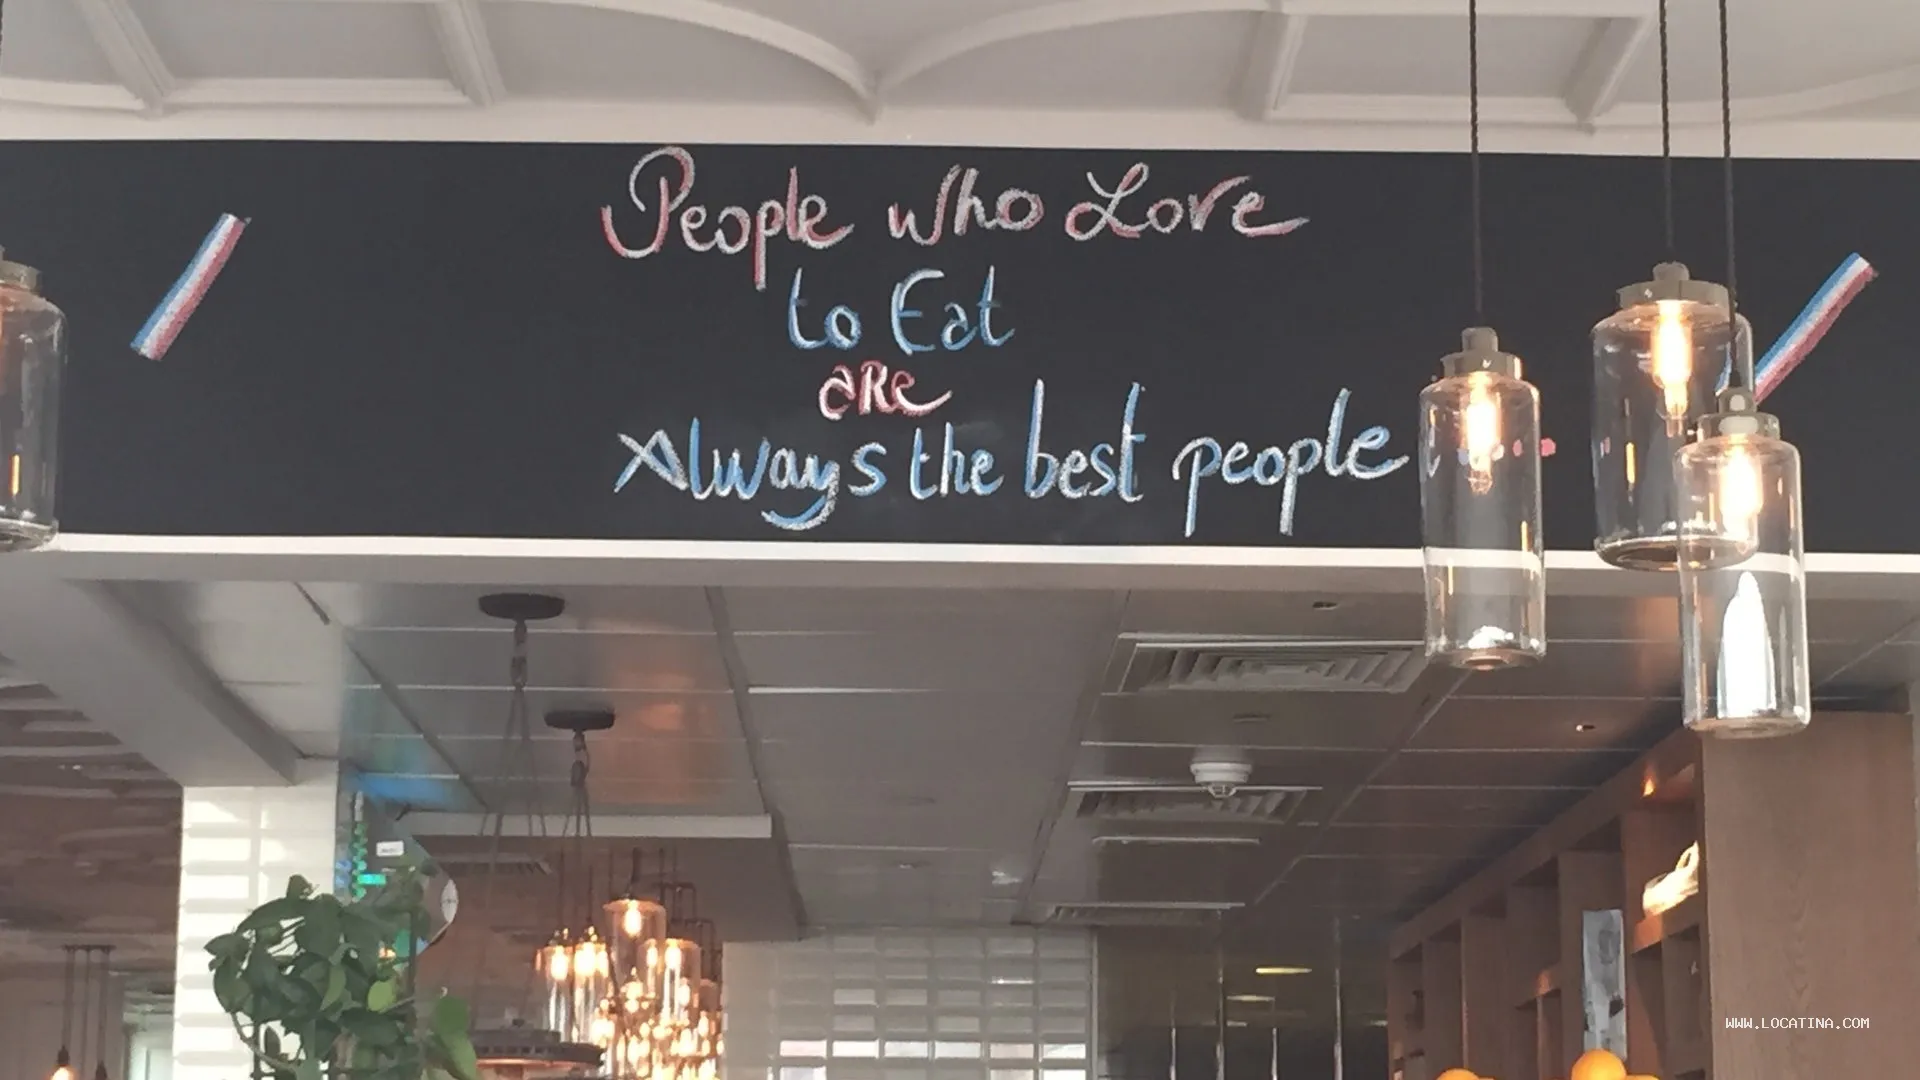 People who Love
to Eat
are
Always the best people
WWW.LOCATINA.COM